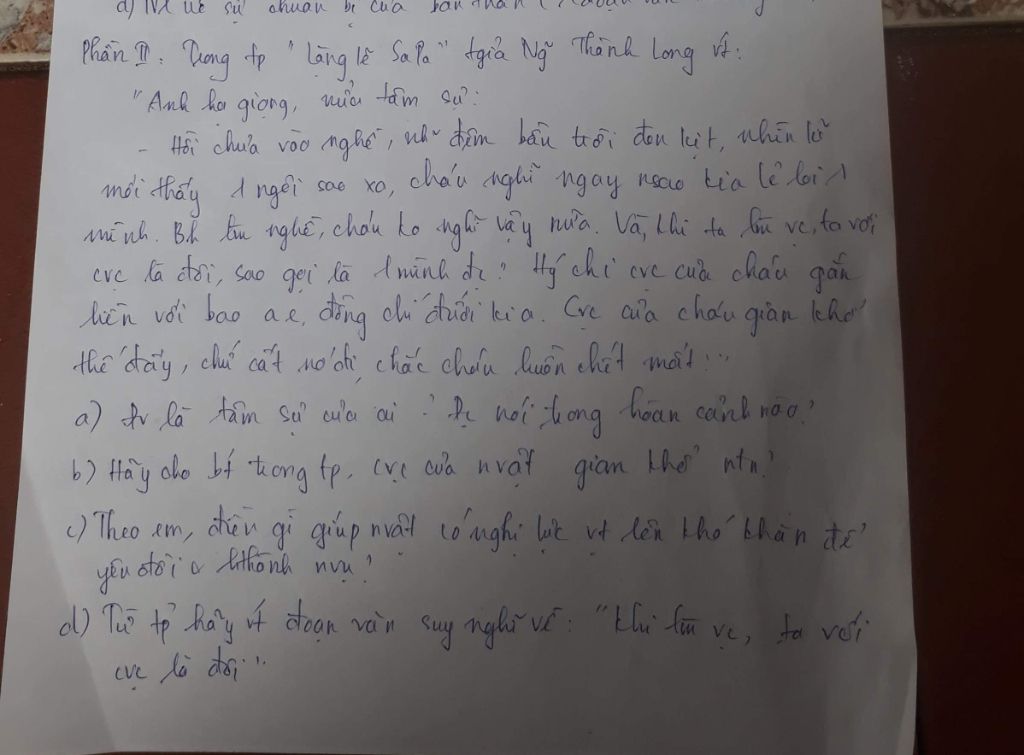 d) NL về sự chuẩn bị của bản thân
Phần II. Trong tp "Lặng lẽ SaPa" tgiả Ng̃ Thành Long vt:
"Anh hạ giọng, nửa tâm sự:
- Hồi chưa vào nghề, nh~ đêm bầu trời đen kịt, nhìn kĩ
mới thấy 1 ngôi sao xa, cháu nghĩ ngay nsao kia lẻ loi 1
mình. Bh làm nghề, cháu ko nghĩ vậy nữa. Vả, khi ta làm vc, ta với
cvc là đôi, sao gọi là 1 mình đc? Hg' chi cvc của cháu gắn
liền với bao a e, đồng chí dưới kia. Cvc của cháu gian khổ
thế đấy, chứ cất nó đi, chắc cháu buồn chết mất..."
a) Đv là tâm sự của ai? Đc nói trong hoàn cảnh nào?
b) Hãy cho bt trong tp, cvc của nvật gian khổ ntn?
c) Theo em, điều gì giúp nvật có nghị lực vt lên khó khăn để
yêu đời & hthành nvụ?
d) Từ tp hãy vt đoạn văn suy nghĩ về: "khi làm vc, ta với
cvc là đôi"